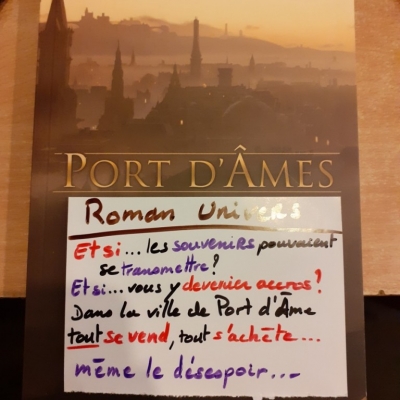 PORT D'ÂMES
Roman Univers
Et si... les souvenirs pouvaient
se transmettre?
Et si... vous y devenier accros?
Dans la ville de Port d'Âme
tout se vend, tout s'achète...
même le désespoir...